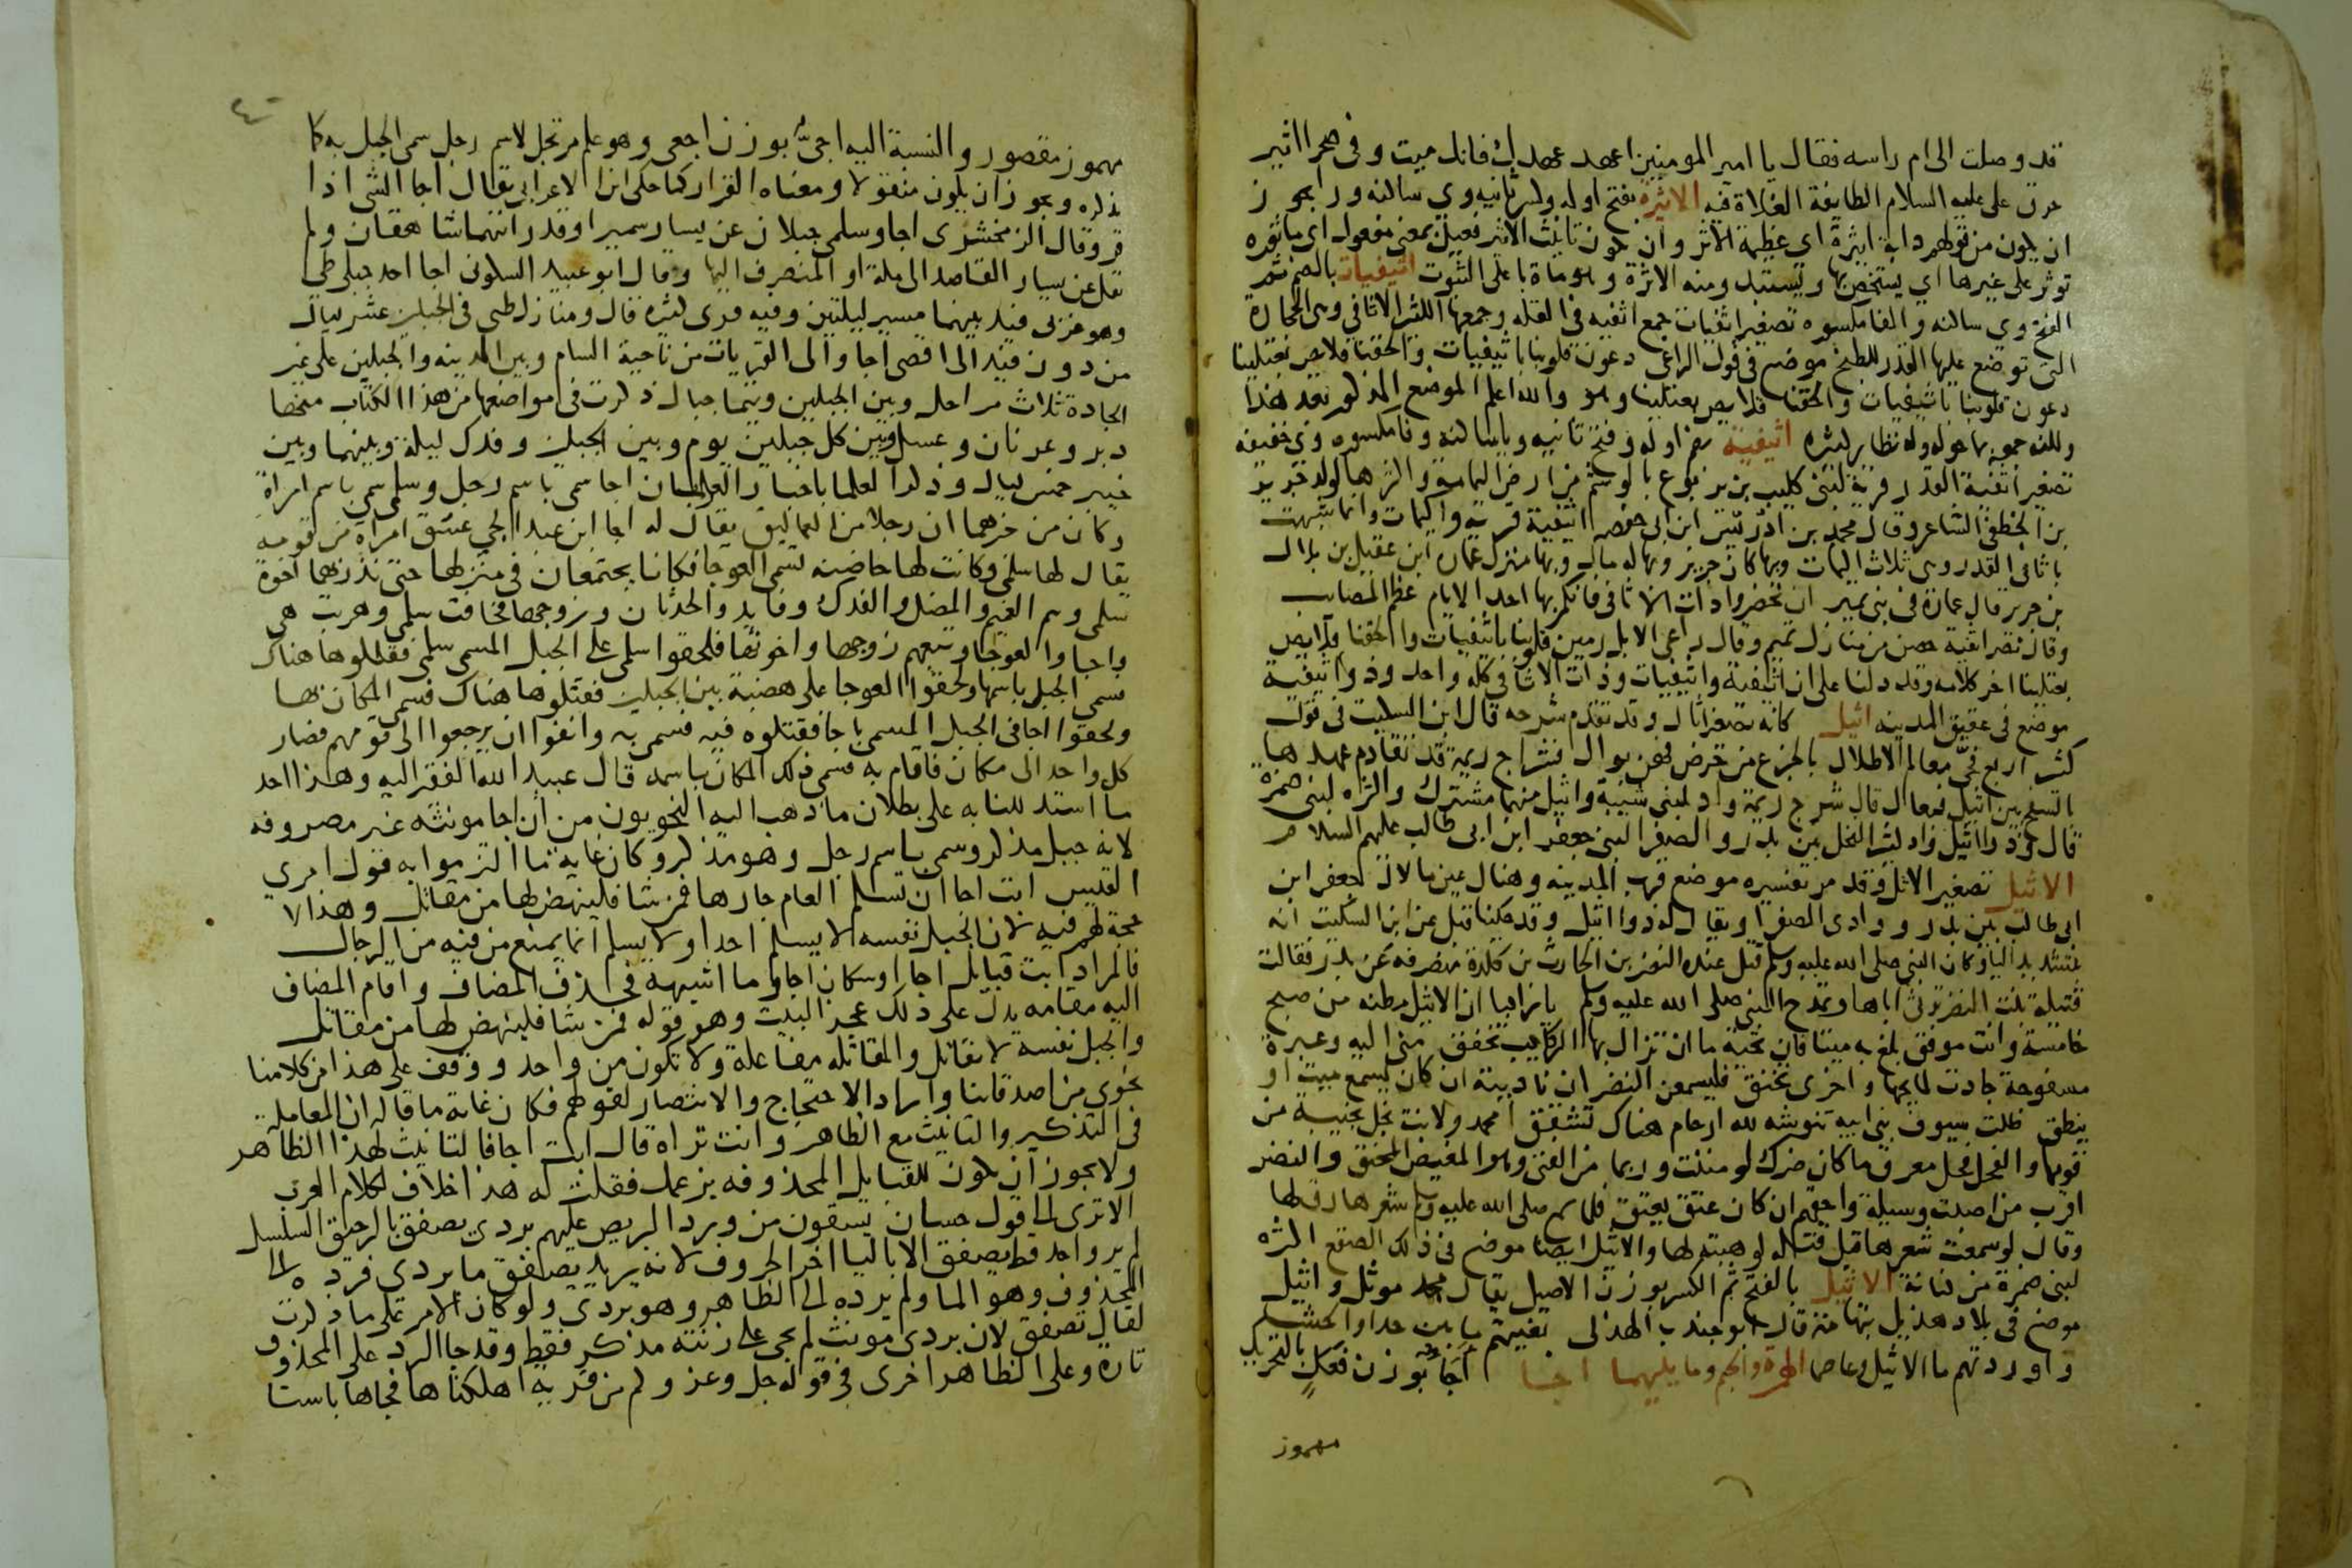 قد وصلت الى ام راسه فقال يا امير المومنين اعهد عهدك فانك ميت وفى صحرا اثير
حرق على عليه السلام الطايفة الغلاة فيه الاثيرة بفتح اوله وكسر ثانيه وى ساكنه ورا يجوز
ان يكون من قولهم دابة اثيرة اى عظيمة الاثر وان يكون تانيث الاثير فعيل بمعنى مفعول اى ماثوره
توثر على غيرها اى يستخص بها ويستبد ومنه الاثرة وهو ماة باعلى الثلبوت اثيفيات بالضم ثم
الفتح وى ساكنه والفا مكسوره تصغير اثفيات جمع اثفيه فى القله وجمعها الكثير الاثافى وهى الحجارة
التى توضع عليها القدر للطبخ موضع فى قول الراعى دعون قلوبنا باثيفيات والحقنا قلايص يعتلينا
دعون قلوبنا باثيفيات والحقنا قلايص يعتلينا وهو والله اعلم الموضع المذكور بعد هذا
ولكنه جمعه بما حوله وله نظاير كثيره اثيفية بضم اوله وفتح ثانيه ويا ساكنه وفا مكسوره وى خفيفه
تصغير اثفية القدر قرية لبنى كليب بن يربوع بالوشم من ارض اليمامة واكثرها لولد جرير
بن الخطفى الشاعر وقال محمد بن ادريس ابن ابى حفصه اثيفية قرية واكيمات وانما شبهت
باثافى القدر وهى ثلاث اكيمات وبها كان جرير وبها له مال وبها منزل عمارة ابن عقيل بن بلال
بن جرير قال عمارة فى بنى نمير ان تحضروا ذات الاثافى فانكم بها احد الايام عظم المصايب
وقال نصر اثيفية حصن من منازل تميم وقال راعى الابل رمين قلوبنا باثيفيات والحقنا قلايص
يعتلينا اخر كلامه وقد دلنا على ان اثيفية واثيفيات وذات الاثافى كله واحد وذو اثيفية
موضع فى عقيق المدينه اثيل كانه تصغير اثال وقد تقدم شرحه قال ابن السكيت فى قول
كثير اربع فحى معالم الاطلال بالجزع من حرض فهن بوال فشراج ريمة قد تقادم عهدها
بالسفح بين اثيل فبعال قال شراج ريمة واد لبنى شيبة واثيل منهما مشترك واكثره لبنى ضمرة
قال وذو اثيل واد كثير النخل بين بدر والصفرا لبنى جعفر ابن ابى طالب عليهم السلام
الاثيل تصغير الاثل وقد مر تفسيره موضع قرب المدينه وهناك عين ما لال جعفر ابن
ابى طالب بين بدر ووادى الصفرا ويقال له ذو اثيل وقد حكينا قبل عن ابن السكيت انه
بتشديد اليا وكان النبى صلى الله عليه وسلم قتل عنده النضر بن الحارث بن كلدة منصرفه عن بدر فقالت
قتيلة بنت النضر ترثى اباها وتمدح النبى صلى الله عليه وسلم يا راكبا ان الاثيل مظنه من صبح
خامسة وانت موفق بلغ به ميتا فان تحية ما ان تزال بها الركايب تخفق منى اليه وعبرة
مسفوحة جادت لمايحها واخرى تخنق فليسمعن النضر ان ناديته ان كان يسمع ميت او
ينطق ظلت سيوف بنى ابيه تنوشه لله ارحام هناك تشقق امحمد ولانت نجل نجيبة من
قومها والفحل فحل معرق ما كان ضرك لو مننت وربما من الفتى وهو المغيض المحنق والنضر
اقرب من اصبت وسيلة واحقهم ان كان عتق يعتق فلما سمع صلى الله عليه وسلم شعرها رق لها
وقال لو سمعت شعرها قبل قتله لوهبته لها والاثيل ايضا موضع فى ذلك الصقع اكثره
لبنى ضمرة من كنانة الاثيل بالفتح ثم الكسر بوزن الاصيل يقال مجد موثل واثيل
موضع فى بلاد هذيل بتهامة قال ابو جندب الهذلى بغيتهم ما بين حدا والحشا
واوردتهم ما الاثيل وعاصما الهمزة والجيم وما يليهما اجا اجأ بوزن فعل بالتحريك
مهموز
مهموز مقصور والنسبة اليه اجئى بوزن اجعى وهو علم مرتجل لاسم رجل سمى الجبل به كما
نذكره ويجوز ان يكون منقولا ومعناه الفرار كما حكى ابن الاعرابى يقال اجا الشى اذا
فر وقال الزمخشرى اجا وسلمى جبلان عن يسار سميرا وقد رايتهما شاهقان ولم
يقل عن يسار القاصد الى مكة او المنصرف اليها وقال ابو عبيد السكونى اجا احد جبلى طى
وهو غربى فيد بينهما مسير ليلتين وفيه قرى كثيره قال ومنازل طى فى الجبلين عشر ليال
من دون فيد الى اقصى اجا والى القريات من ناحية الشام وبين المدينه والجبلين على غير
الجادة ثلاث مراحل وبين الجبلين وتيما جبال ذكرت فى مواضعها من هذا الكتاب منها
دبر وغرنان وغسل وبين كل جبلين يوم وبين الجبلين وفدك ليلة وبينهما وبين
خيبر خمس ليال وذكر العلما باخبار العرب ان اجا سمى باسم رجل وسلمى سمى باسم امراة
وكان من خبرهما ان رجلا من العماليق يقال له اجا ابن عبد الحى عشق امراة من قومه
يقال لها سلمى وكانت لها حاضنه تسمى العوجا فكانا يجتمعان فى منزلها حتى نذر بهما اخوة
سلمى وهم الغميم والمضل والفدك وفايد والحدثان وزوجها فخافت سلمى وهربت هى
واجا والعوجا وتبعهم زوجها واخوتها فلحقوا سلمى على الجبل المسمى سلمى فقتلوها هناك
فسمى الجبل باسمها ولحقوا العوجا على هضبة بين الجبلين فقتلوها هناك فسمى المكان بها
ولحقوا اجا فى الجبل المسمى باجا فقتلوه فيه فسمى به وانفوا ان يرجعوا الى قومهم فصار
كل واحد الى مكان فاقام به فسمى ذلك المكان باسمه قال عبيد الله الفقير اليه وهذا احد
ما استدللنا به على بطلان ما ذهب اليه النحويون من ان اجا مونثه غير مصروفه
لانه جبل مذكر وسمى باسم رجل وهو مذكر وكان غاية ما التزموا به قول امرى
القيس ابت اجا ان تسلم العام جارها فمن شا فلينهض لها من مقاتل وهذا لا
حجة لهم فيه لان الجبل نفسه لا يسلم احدا ولا يسلم انما يمنع من فيه من الرجال
فالمراد ابت قبايل اجا او سكان اجا وما اشبهه فحذف المضاف واقام المضاف
اليه مقامه يدل على ذلك عجز البيت وهو قوله فمن شا فلينهض لها من مقاتل
والجبل نفسه لا يقاتل والمقاتله مفاعلة ولا تكون من واحد ووقف على هذا من كلامنا
نحوى من اصدقاينا واراد الاحتجاج والانتصار لقولهم فكان غاية ما قاله ان المعاملة
فى التذكير والتانيث مع الظاهر وانت تراه قال ابت اجا فالتانيث لهذا الظاهر
ولا يجوز ان يكون للقبايل المحذوفه بزعمك فقلت له هذا خلاف لكلام العرب
الا ترى الى قول حسان يسقون من ورد البريص عليهم بردى يصفق بالرحيق السلسل
لم يرو احد قط يصفق الا باليا اخر الحروف لانه يريد يصفق ما بردى فرده الى
المحذوف وهو الما ولم يرده الى الظاهر وهو بردى ولو كان الامر على ما ذكرت
لقال تصفق لان بردى مونث لم يجى على زنته مذكر فقط وقد جا الرد على المحذوف
تارة وعلى الظاهر اخرى فى قوله جل وعز وكم من قرية اهلكناها فجاها باسنا